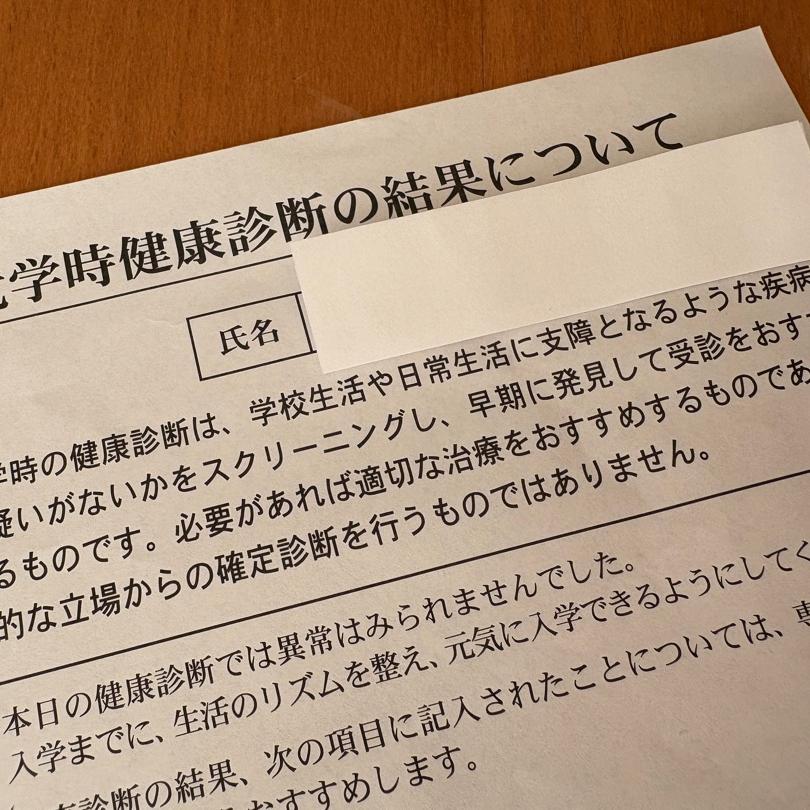 学時健康診断の結果について
氏名
学時の健康診断は、学校生活や日常生活に支障となるような疾病
疑いがないかをスクリーニングし、早期に発見して受診をおすす
るものです。必要があれば適切な治療をおすすめするものであ
的な立場からの確定診断を行うものではありません。
本日の健康診断では異常はみられませんでした。
入学までに、生活のリズムを整え、元気に入学できるようにしてく
診断の結果、次の項目に記入されたことについては、専
おすすめします。